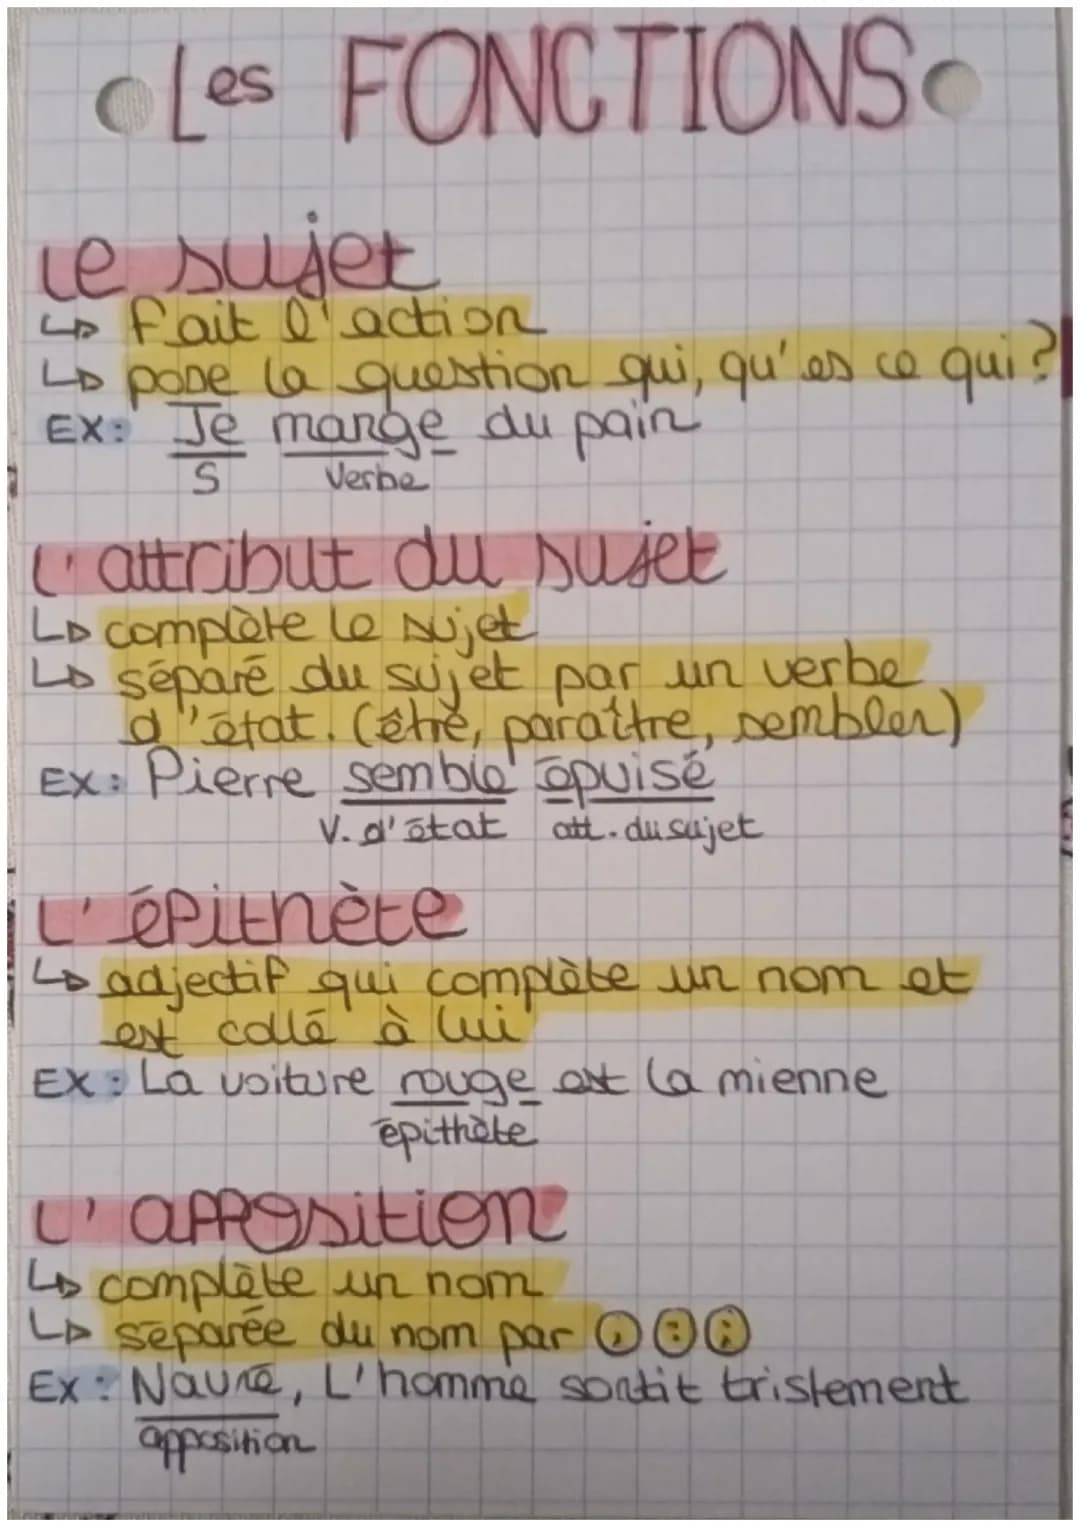 Les FONCTIONS
Le sujet
↳ fait l'action
↳ pose la question qui, qu'es ce qui?
EX: Je mange du pain
S Verbe
L'attribut du sujet
↳ complète le sujet
↳ séparé du sujet par un verbe
d'état. (être, paraître, sembler)
EX: Pierre semble épuisé
V. d'état att. du sujet
L'épithète
↳ adjectif qui complète un nom et
est collé à lui
EX: La voiture rouge est la mienne
épithète
L'apposition
↳ complète un nom
↳ séparée du nom par , : ;
Ex: Navré, L'homme sortit tristement
apposition